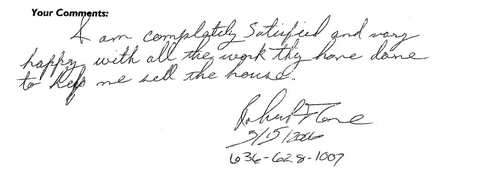 Your Comments:
I am complately satisfied and vary
happy with all the work thy have done
to Help me sell the house.
Robert
3/15/2006
636-628-1007